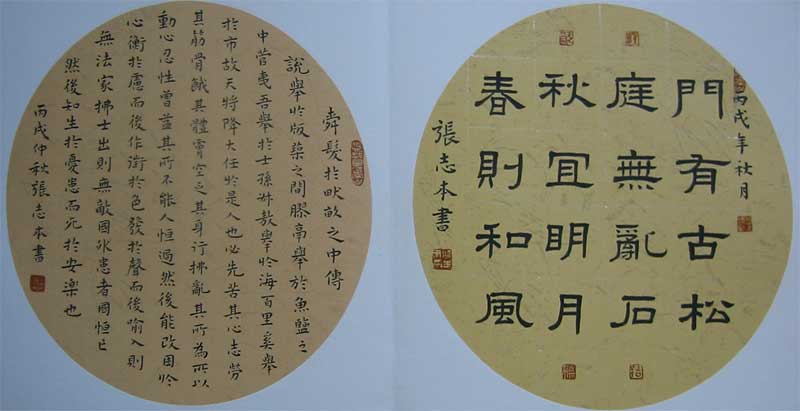 丙戌年秋月
門有古松
庭無亂石
秋冝明月
春則和風
張志本書
舜髮於畎畝之中傳
說舉於版築之間膠鬲舉於魚鹽之
中管夷吾舉於士孫叔敖舉於海百里奚舉
於市故天將降大任於是人也必先苦其心志勞
其筋骨餓其體膚空乏其身行拂亂其所為所以
動心忍性曾益其所不能人恒過然後能改困於
心衡於慮而後作徵於色發於聲而後喻入則
無法家拂士出則無敵國外患者國恒亡
然後知生於憂患而死於安樂也
丙戌仲秋張志本書